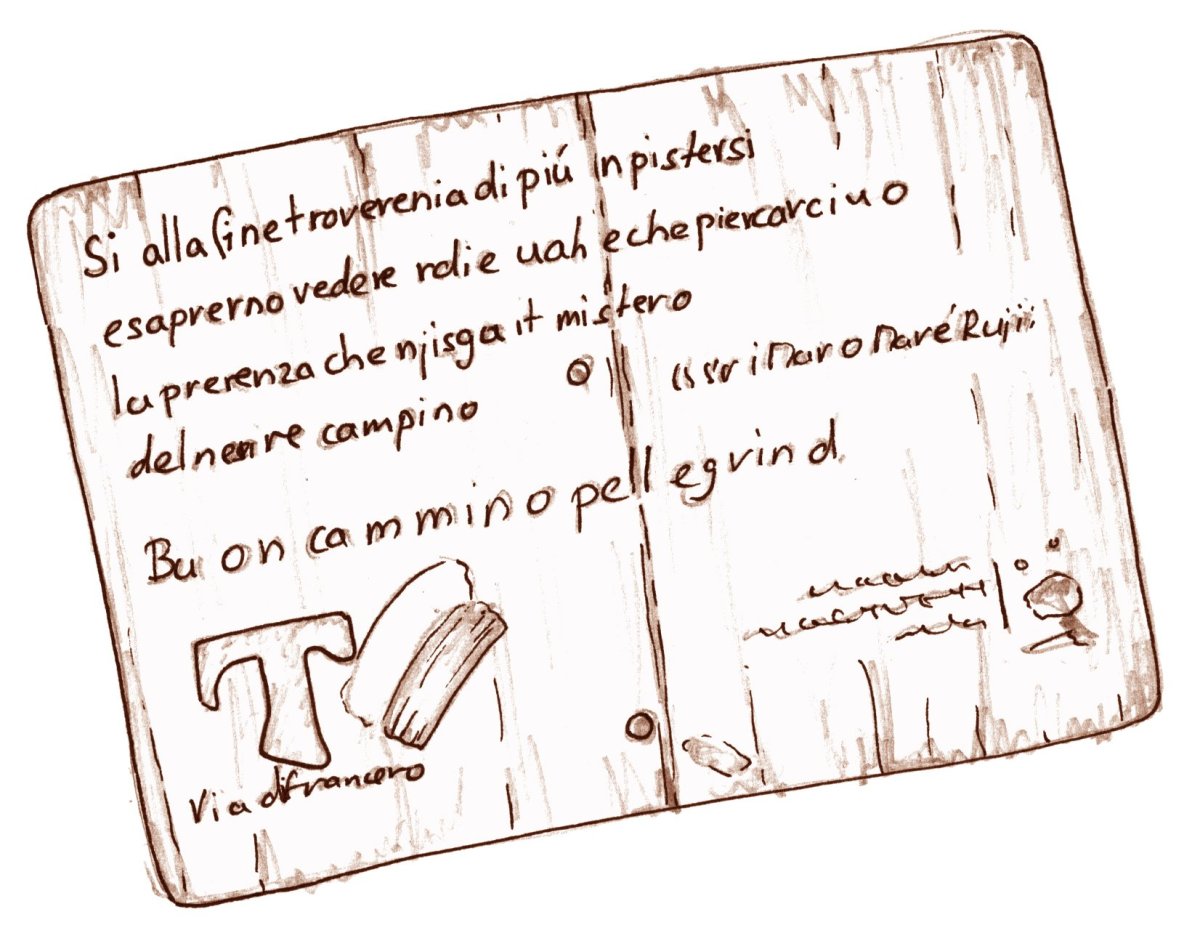 Si alla fine troverenia di più in pistersi
esaprerno vedere rdie uah echepiercarciuo
la prerenza che njisga it mistero
del nenre campino
Buon cammino pellegrind
Via difrancero